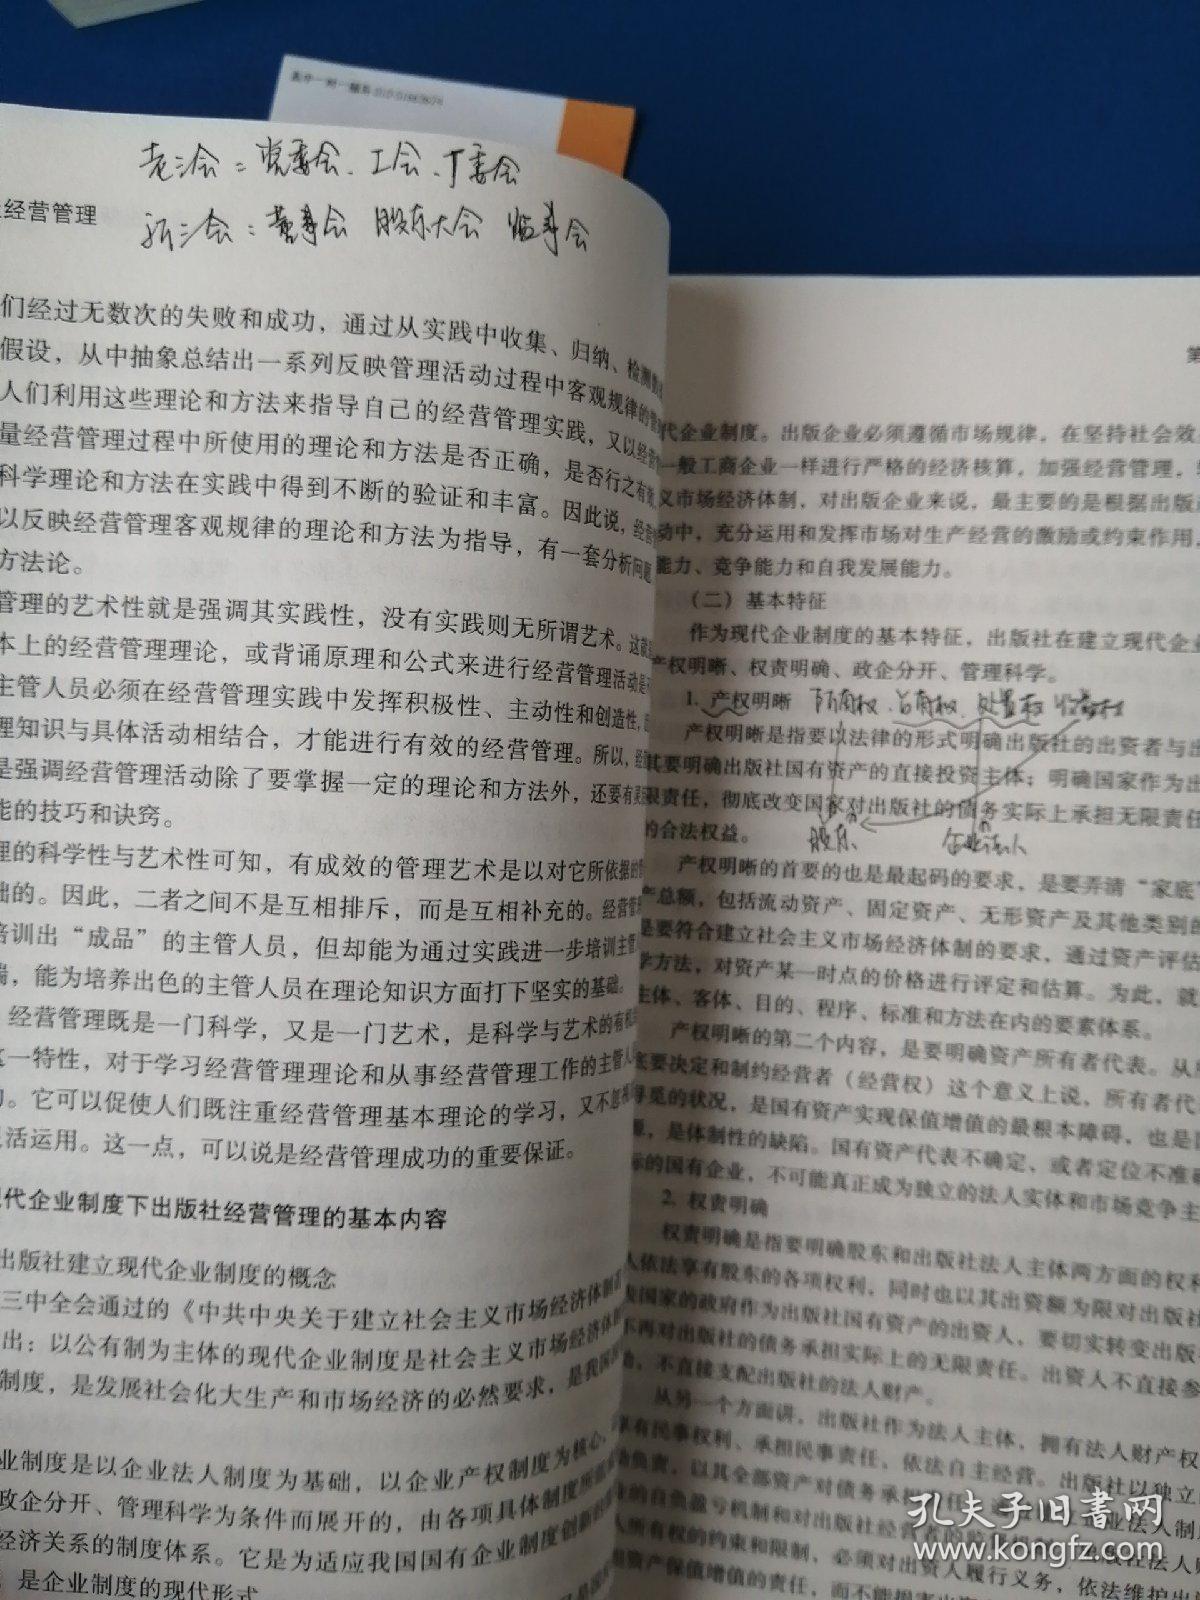 老三会：党委会、工会、丁委会
新三会：董事会 股东大会 临事会
经营管理
们经过无数次的失败和成功，通过从实践中收集、归纳、检测
假设，从中抽象总结出一系列反映管理活动过程中客观规律的
人们利用这些理论和方法来指导自己的经营管理实践，又以经营
量经营管理过程中所使用的理论和方法是否正确，是否行之有
科学理论和方法在实践中得到不断的验证和丰富。因此说，经营
以反映经营管理客观规律的理论和方法为指导，有一套分析问题
方法论。
管理的艺术性就是强调其实践性，没有实践则无所谓艺术。这就
本上的经营管理理论，或背诵原理和公式来进行经营管理活动是
主管人员必须在经营管理实践中发挥积极性、主动性和创造性，
理知识与具体活动相结合，才能进行有效的经营管理。所以，经
是强调经营管理活动除了要掌握一定的理论和方法外，还要有灵
能的技巧和诀窍。
理的科学性与艺术性可知，有成效的管理艺术是以对它所依据的
础的。因此，二者之间不是互相排斥，而是互相补充的。经营管
培训出“成品”的主管人员，但却能为通过实践进一步培训主管
端，能为培养出色的主管人员在理论知识方面打下坚实的基础。
经营管理既是一门科学，又是一门艺术，是科学与艺术的有机
这一特性，对于学习经营管理理论和从事经营管理工作的主管人
的。它可以促使人们既注重经营管理基本理论的学习，又不忽
灵活运用。这一点，可以说是经营管理成功的重要保证。
现代企业制度下出版社经营管理的基本内容
出版社建立现代企业制度的概念
三中全会通过的《中共中央关于建立社会主义市场经济体制
出：以公有制为主体的现代企业制度是社会主义市场经济体
制度，是发展社会化大生产和市场经济的必然要求，是我国
业制度是以企业法人制度为基础，以企业产权制度为核心，
政企分开、管理科学为条件而展开的，由各项具体制度所
经济关系的制度体系。它是为适应我国国有企业制度创新的
是企业制度的现代形式
第
代企业制度。出版企业必须遵循市场规律，在坚持社会效
一般工商企业一样进行严格的经济核算，加强经营管理，
义市场经济体制，对出版企业来说，最主要的是根据出版
动中，充分运用和发挥市场对生产经营的激励或约束作用，
能力、竞争能力和自我发展能力。
（二）基本特征
作为现代企业制度的基本特征，出版社在建立现代企业
产权明晰、权责明确、政企分开、管理科学。
1. 产权明晰 所有权、占有权、处置权 收益权
产权明晰是指要以法律的形式明确出版社的出资者与出
其要明确出版社国有资产的直接投资主体；明确国家作为出
限责任，彻底改变国家对出版社的债务实际上承担无限责任
的合法权益。 股东 企业法人
产权明晰的首要的也是最起码的要求，是要弄清“家底”
产总额，包括流动资产、固定资产、无形资产及其他类别的
是要符合建立社会主义市场经济体制的要求，通过资产评估
学方法，对资产某一时点的价格进行评定和估算。为此，就
主体、客体、目的、程序、标准和方法在内的要素体系。
产权明晰的第二个内容，是要明确资产所有者代表。从
底要决定和制约经营者（经营权）这个意义上说，所有者代
寻觅的状况，是国有资产实现保值增值的最根本障碍，也是
源，是体制性的缺陷。国有资产代表不确定、或者定位不准确
标的国有企业，不可能真正成为独立的法人实体和市场竞争主
2. 权责明确
权责明确是指要明确股东和出版社法人主体两方面的权利
人依法享有股东的各项权利，同时也以其出资额为限对出版社
表国家的政府作为出版社国有资产的出资人，要切实转变出版
不再对出版社的债务承担实际上的无限责任。出资人不直接参
动，不直接支配出版社的法人财产。
从另一个方面讲，出版社作为法人主体，拥有法人财产权
享有民事权利、承担民事责任，依法自主经营。出版社以独立
负责，以其全部资产对债务承担责任
的自负盈亏机制和对出版社经营者的监
人所有权的约束和限制，必须对出资人履行义务，依法维护出
资产保值增值的责任，而不能损害出资
孔夫子旧书网
www.kongfz.com